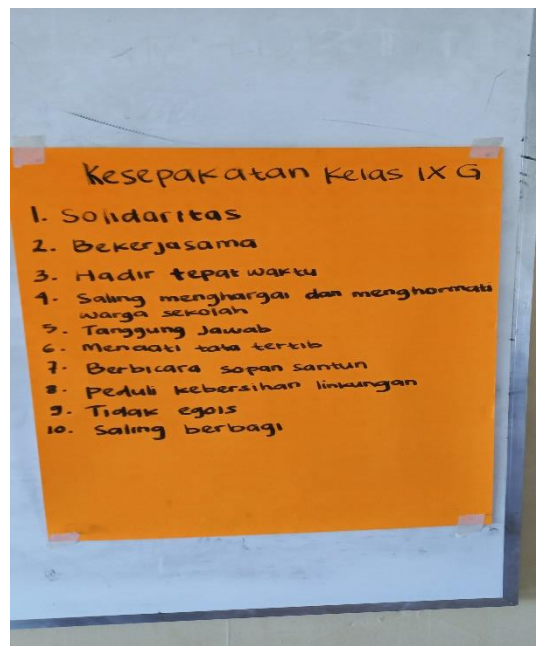 Kesepakatan Kelas IX G
1. Solidaritas
2. Bekerjasama
3. Hadir tepat waktu
4. Saling menghargai dan menghormati
warga sekolah
5. Tanggung Jawab
6. Menaati tata tertib
7. Berbicara sopan santun
8. Peduli kebersihan linkungan
9. Tidak egois
10. Saling berbagi